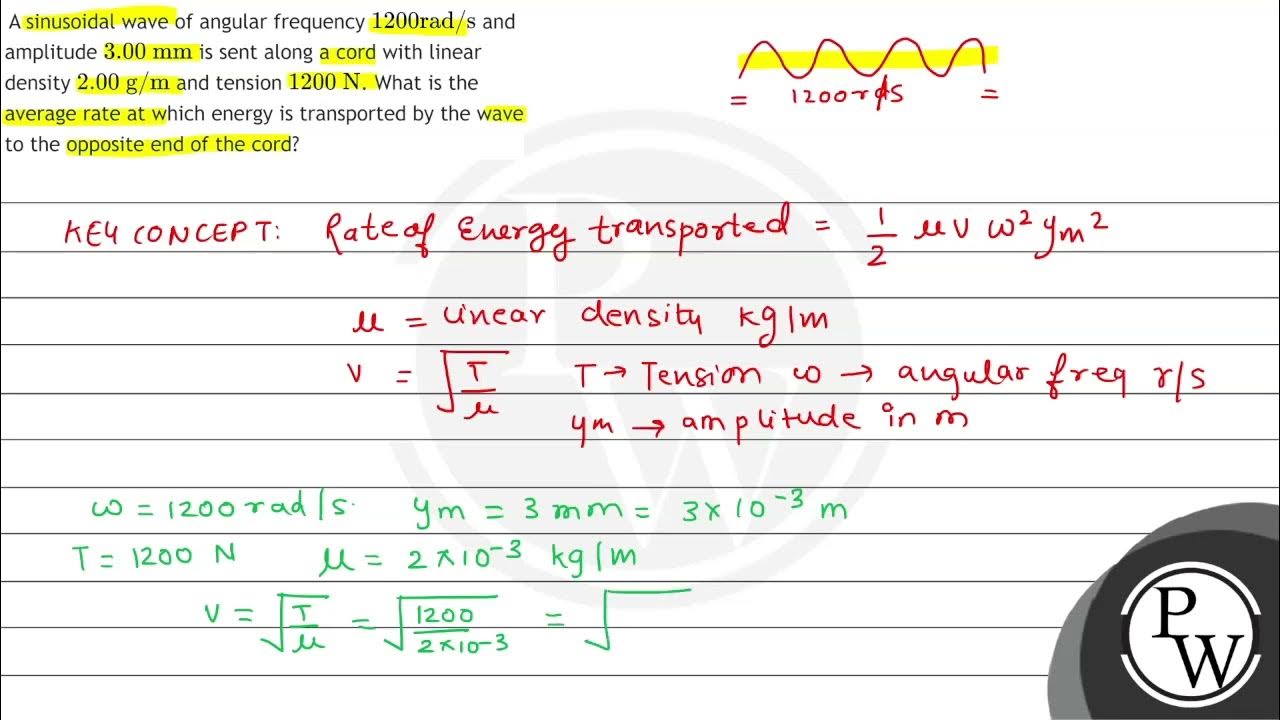 A sinusoidal wave of angular frequency 1200rad/s and
amplitude 3.00 mm is sent along a cord with linear
density 2.00 g/m and tension 1200 N. What is the
average rate at which energy is transported by the wave
to the opposite end of the cord?
= 1200 rds =
KEY CONCEPT: Rate of Energy transported = 1/2 μ v ω² ym²
μ = linear density kg/m
v = √(T/μ) T → Tension ω → angular freq r/s
ym → amplitude in m
ω = 1200 rad/s. ym = 3 mm = 3 × 10⁻³ m
T = 1200 N μ = 2 × 10⁻³ kg/m
v = √(T/μ) = √(1200/2×10⁻³) = √
PW
PW